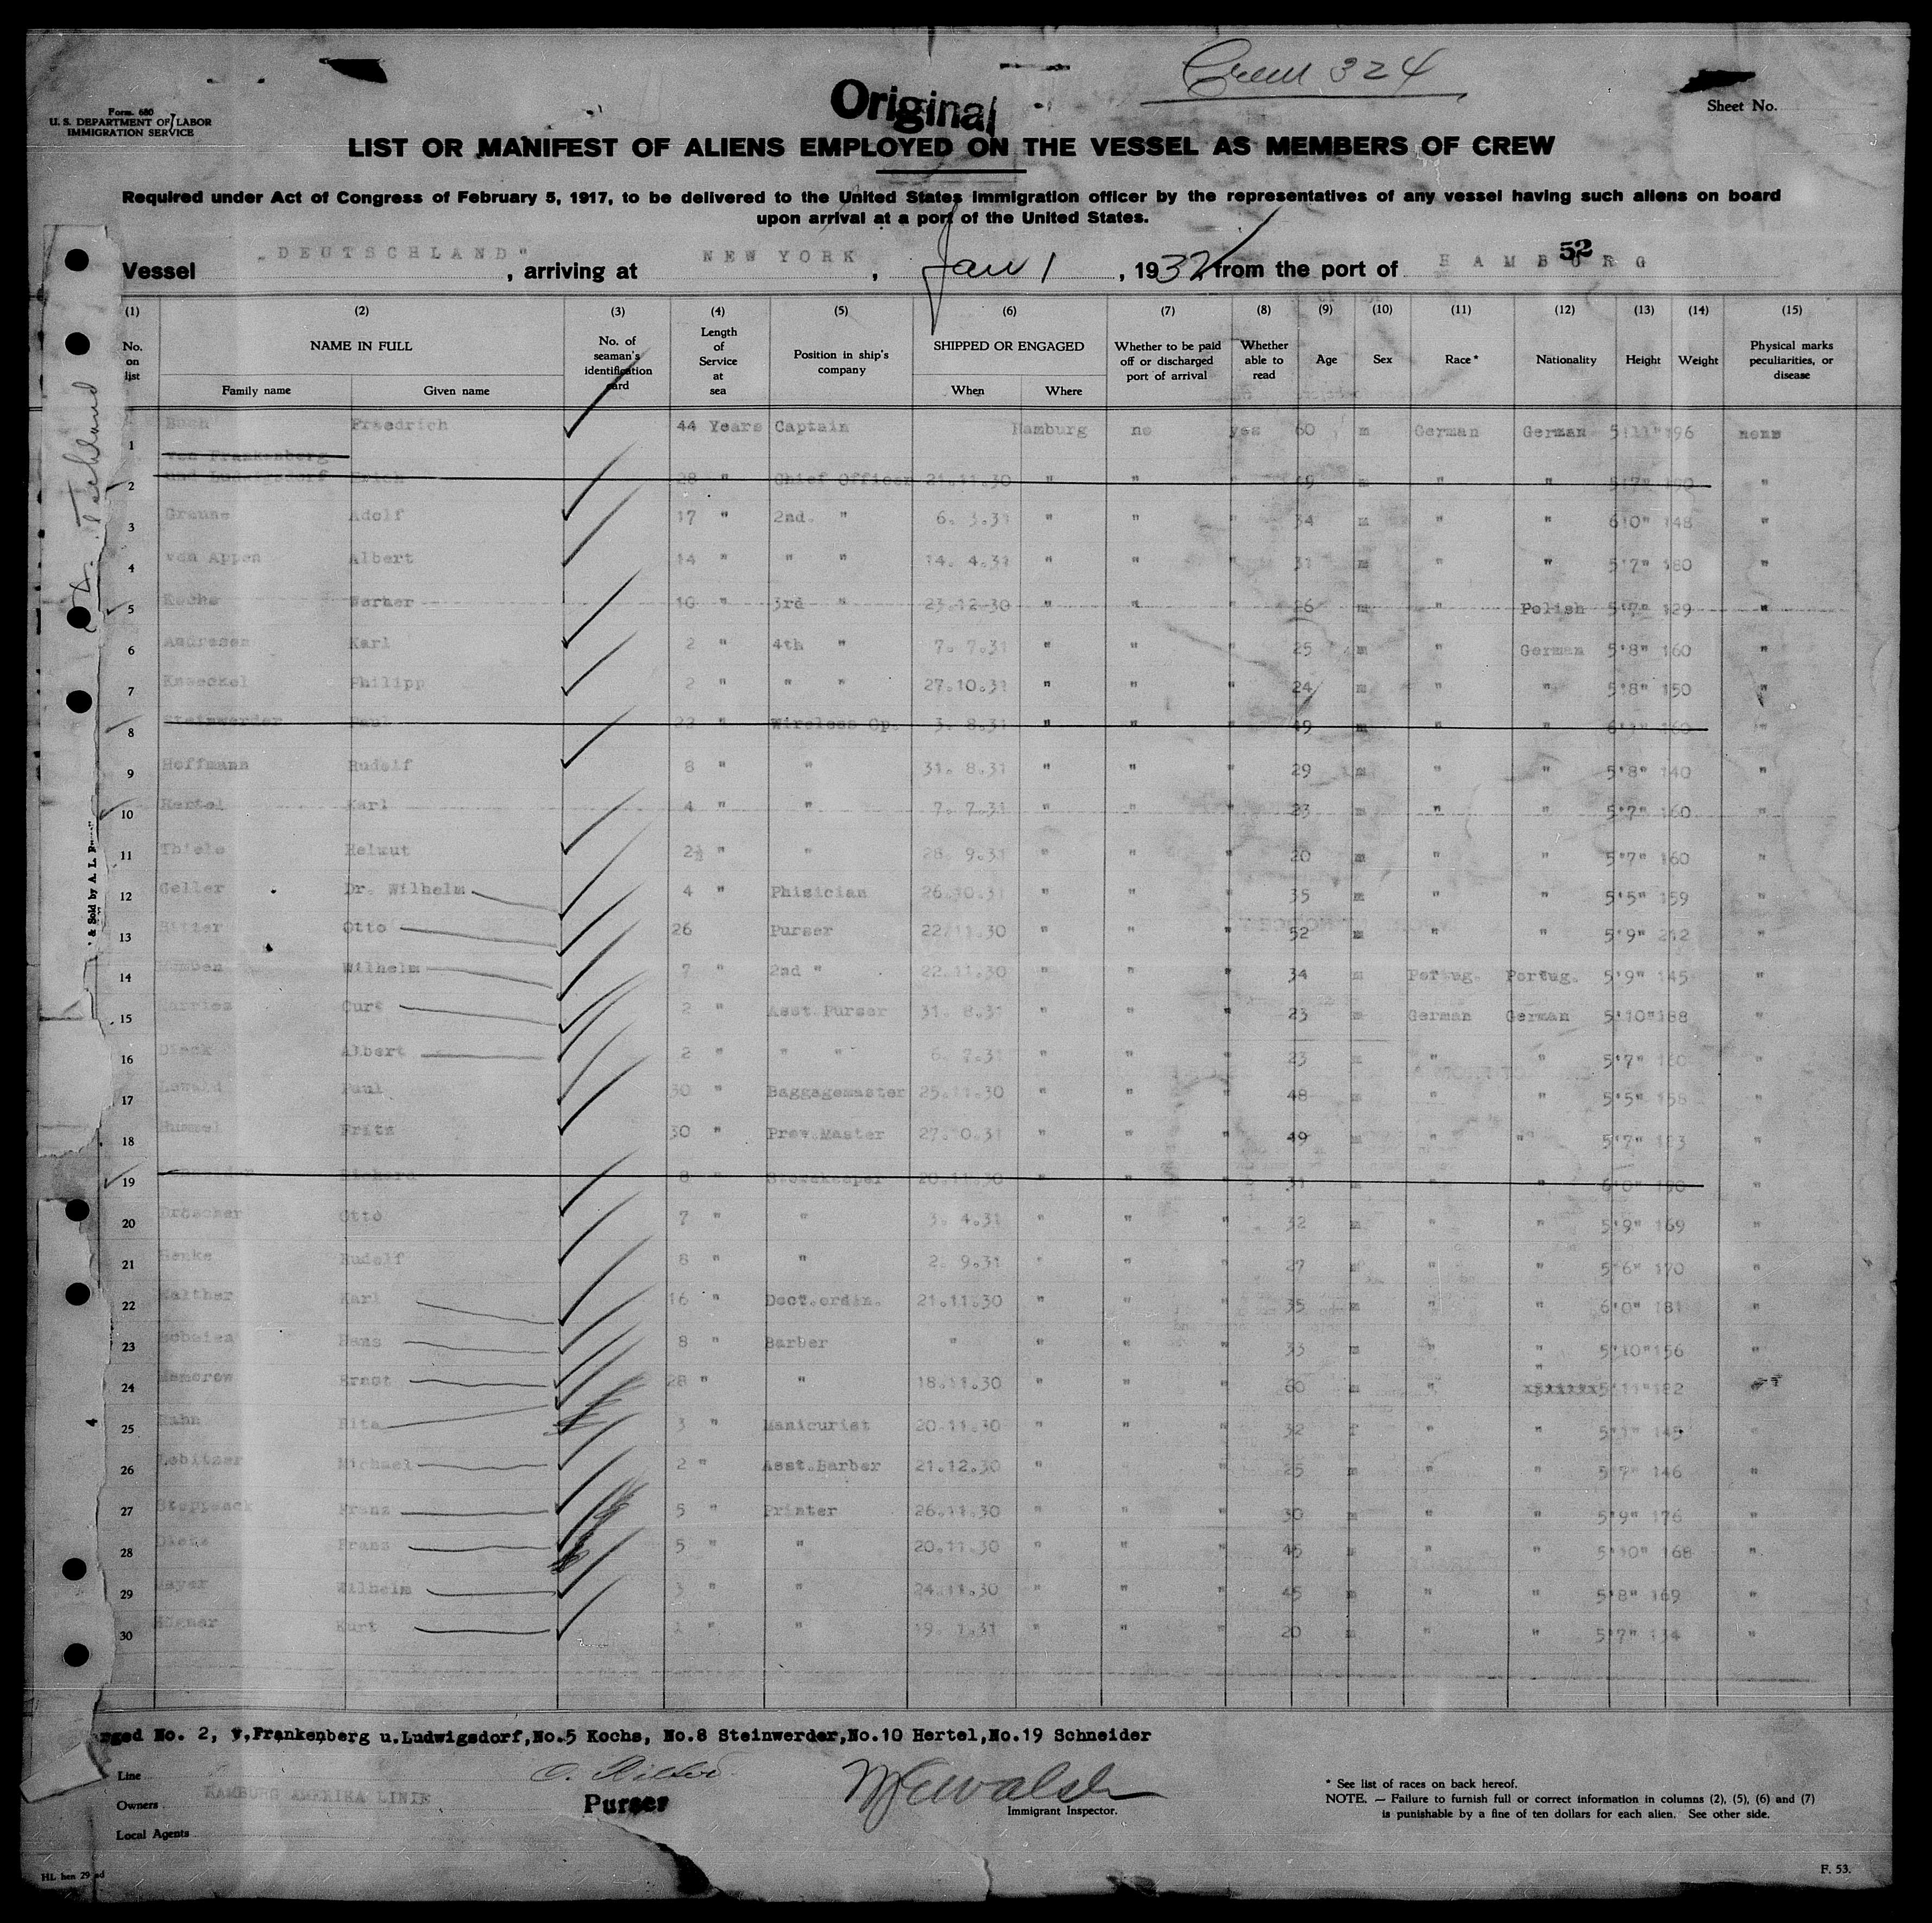 Crew 324
Original
Form 680
U. S. DEPARTMENT OF LABOR
IMMIGRATION SERVICE
Sheet No.
LIST OR MANIFEST OF ALIENS EMPLOYED ON THE VESSEL AS MEMBERS OF CREW
Required under Act of Congress of February 5, 1917, to be delivered to the United States immigration officer by the representatives of any vessel having such aliens on board
upon arrival at a port of the United States.
52
Vessel "DEUTSCHLAND", arriving at NEW YORK, Jan 1, 1932 from the port of HAMBURG
(1) (2) (3) (4) (5) (6) (7) (8) (9) (10) (11) (12) (13) (14) (15)
No. on list NAME IN FULL Family name Given name No. of seaman's identification card Length of Service at sea Position in ship's company SHIPPED OR ENGAGED When Where Whether to be paid off or discharged port of arrival Whether able to read Age Sex Race* Nationality Height Weight Physical marks peculiarities, or disease
1 Friedrich 44 Years Captain Hamburg no yes 60 m German German 5'11" 196 none
von Frankenberg
2 und Ludwigsdorf Erich 28 " Chief Officer 21.11.30 " " " 49 m " " 5'7" "
3 Adolf 17 " 2nd. " 6. 3.31 " " " 34 m " " 6'0" 148 "
4 von Appen Albert 14 " " " 14. 4.31 " " " 31 m " " 5'7" 180 "
5 Kochs Werner 10 " 3rd " 23.12.30 " " " 26 m " Polish 5'7" 129 "
6 Andresen Karl 2 " 4th " 7. 7.31 " " " 25 m " German 5'8" 160 "
7 Philipp 2 " " " 27.10.31 " " " 24 m " " 5'8" 150 "
8 Steinwerder Paul " Wireless Op. 3. 8.31 " " " 49 m " " 160 "
9 Hoffmann Rudolf 8 " " 31. 8.31 " " " 29 m " " 5'8" 140 "
10 Hertel Karl 4 " " 7. 7.31 " " " 23 m " " 5'7" 160 "
11 Thiele Helmut 2½ " " 28. 9.31 " " " 20 m " " 5'7" 160 "
12 Geller Dr. Wilhelm 4 " Phisician 26.10.31 " " " 35 m " " 5'5" 159 "
13 Ritter Otto 26 Purser 22.11.30 " " " 52 m " " 5'9" 212 "
14 Wilhelm 7 " 2nd " 22.11.30 " " " 34 m Portug. Portug. 5'9" 145 "
15 Harries Curt 2 " Asst.Purser 31. 8.31 " " " 23 m German German 5'10" 188 "
16 Albert 2 " " " 6. 7.31 " " " 23 m " " 5'7" 160 "
17 Paul 30 " Baggagemaster 25.11.30 " " " 48 m " " 5'5" 158 "
18 Hummel Fritz 30 " Prov.Master " " " 49 m " " 5'7" "
19 Richard 8 " Storekeeper 20.11.30 " " " 31 m " " 6'0" "
20 Otto 7 " " 3. 4.31 " " " 32 m " " 5'9" 169 "
21 Henke Rudolf 8 " " 2. 9.31 " " " 27 m " " 5'6" 170 "
22 Walther Karl 16 " Doct.ordin. 21.11.30 " " " 35 m " " 6'0" 181 "
23 Hans 8 " Barber " " " " 33 m " " 5'10" 156 "
24 Ernst 28 " " 18.11.30 " " " 60 m " " 5'11" 182
25 Rita 3 " Manicurist 20.11.30 " " " 32 f " " "
26 Michael 2 " Asst.Barber 21.12.30 " " " 25 m " " 5'7" 146 "
27 Franz 5 " Printer 26.11.30 " " " 30 m " " 5'9" 176 "
28 Franz 5 " " 20.11.30 " " " 45 m " " 5'10" 168 "
29 Mayer Wilhelm 3 " " 24.11.30 " " " 45 m " " 5'8" 169 "
30 Kurt 1 " " 19. 1.31 " " " 20 m " " 5'7" 134 "
No. 2, v.Frankenberg u.Ludwigsdorf,No.5 Kochs, No.8 Steinwerder,No.10 Hertel,No.19 Schneider
Line
Owners HAMBURG AMERIKA LINIE
Local Agents
O. Ritter
Purser
Immigrant Inspector.
* See list of races on back hereof.
NOTE. — Failure to furnish full or correct information in columns (2), (5), (6) and (7)
is punishable by a fine of ten dollars for each alien. See other side.
& Sold by A. L.
F. 53.